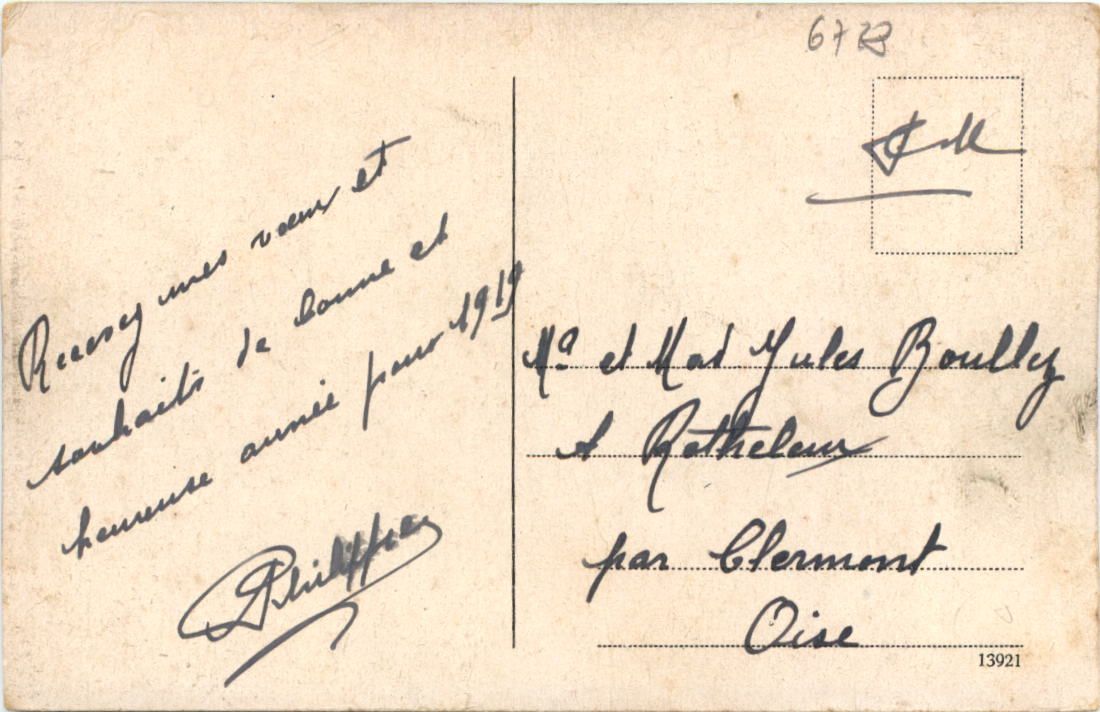 6723
F M
Recevez mes vœux et
souhaits de bonne et
heureuse année pour 1919
Philippe
Mr et Mad Jules Boullez
A Rotheleux
par Clermont
Oise
13921